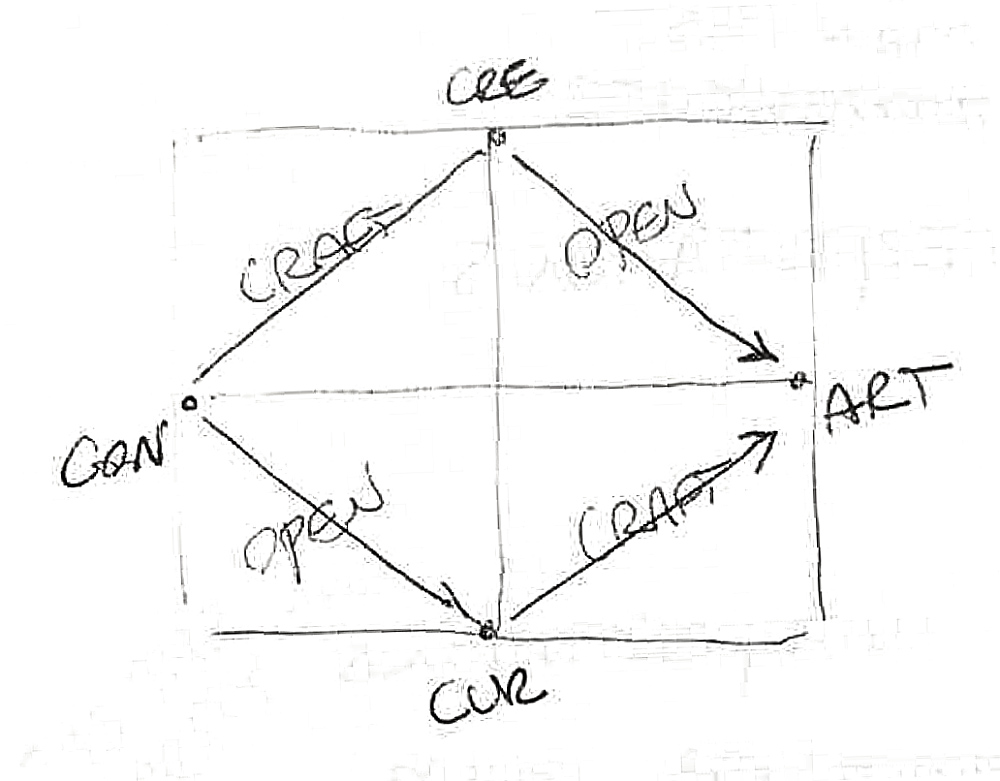 CRE
CRAFT
OPEN
ART
GEN
OPEN
CRAFT
CUR